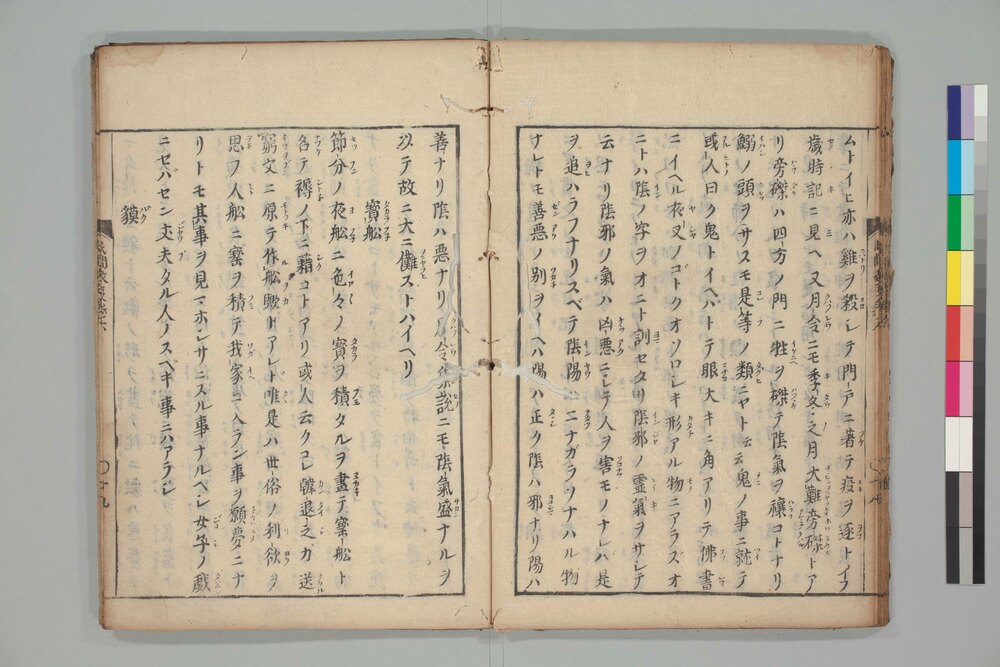 ムトイヒ亦ハ雞ヲ殺シテ門戸ニ著テ疫ヲ逐トイフ
歳時記ニ見ヘ又月令ニモ季冬之月大難旁磔トア
リ旁磔ハ四方ノ門ニ牲ヲ磔テ陰氣ヲ禳コトナリ
鰯ノ頭ヲサスモ是等ノ類ニヤト云云鬼ノ事ニ就テ
或人曰ク鬼トイヘバトテ眼大キニ角アリテ佛書
ニイヘル夜叉ノゴトクオソロシキ形アル物ニアラズオ
ニトハ陰ノ字ヲオニト訓セタリ陰邪ノ靈氣ヲサシテ
云ナリ陰邪ノ氣ハ凶惡ニシテ人ヲ害モノナレハ是
ヲ追ハラフナリスベテ陰陽ニツナガラソナハル物
ナレトモ善悪ノ別ヲイヘハ陽ハ正ク陰ハ邪ナリ陽ハ
善ナリ陰ハ悪ナリ月令集説ニモ陰氣盛ナルヲ
以テ故ニ大ニ儺ストハイヘリ
寳船
節分ノ夜船ニ色々ノ寳ヲ積タルヲ畫テ寳船ト
名テ褥ノ下ニ藉コトアリ或人云クコレ韓退之カ送
窮文ニ原テ作船歟トアレト唯是ハ世俗ノ利欲ヲ
思フ人船ニ寳ヲ積テ我家ニ入ラン事ヲ願夢ニナ
リトモ其事ヲ見マホシサニスル事ナルベシ女子ノ戯
ニセバセン丈夫タル人ノスベキ事ニハアラジ
貘